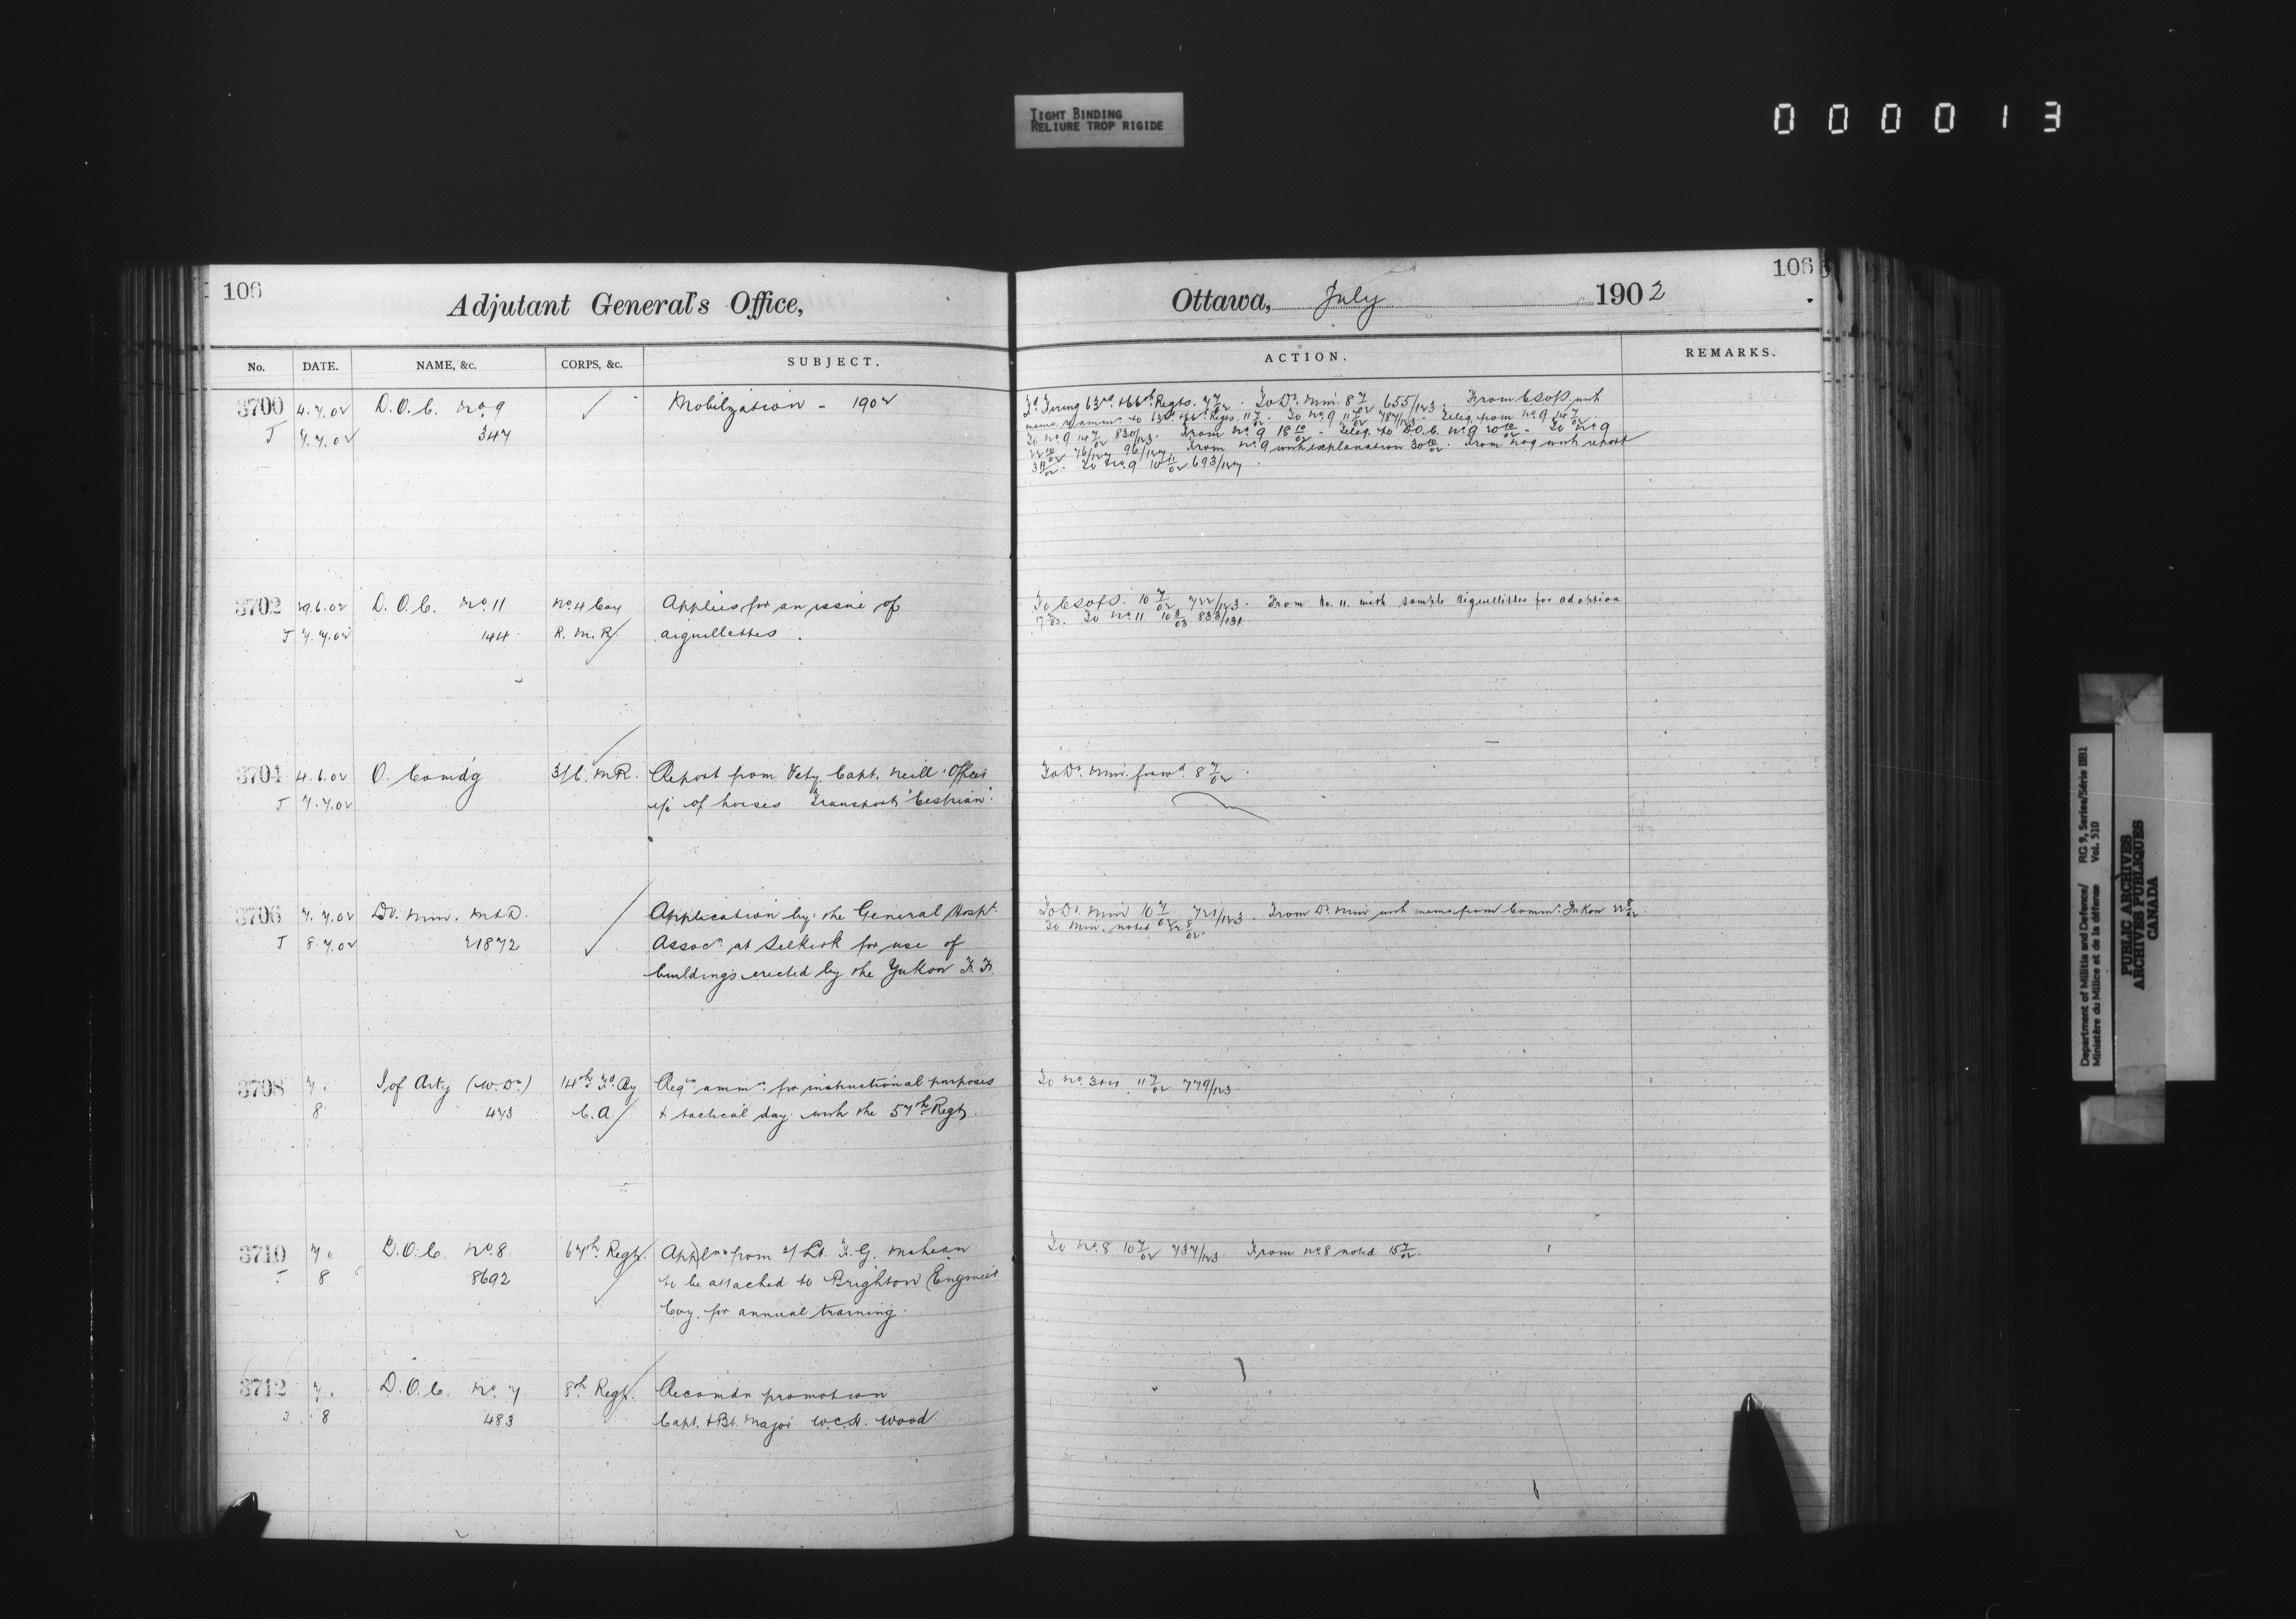 TIGHT BINDING
RELIURE TROP RIGIDE
000013
106
Adjutant General's Office,
No. DATE. NAME, &c. CORPS, &c. SUBJECT.
3700 4.7.02 D.O.C. No. 9 Mobilization - 1902
J 7.7.02 347
3702 29.6.02 D.O.C. No. 11 No. 4 Coy Applies for an issue of
J 7.7.02 144 R.M.R. aiguillettes.
3704 4.6.02 O. Comdg 3/C.M.R. Report from Vety. Capt. Neill Officer
J 7.7.02 i/c of horses Transport "Cestrian".
3706 7.7.02 D. Min. M&D. Application by the General Hospt.
J 8.7.02 21872 Assocn. at Selkirk for use of
buildings erected by the Yukon F.F.
3708 7. I of Arty (W.Dn.) 14th Fd By Reqn ammn. for instructional purposes
8 473 C.A. & tactical day with the 57th Regt.
3710 7 " D.O.C. No. 8 67th Regt. Appln from 2/Lt. F.G. McLean
J 8 8692 to be attached to Brighton Engineer
Coy. for annual training.
3712 7. D.O.C. No. 7 8th Regt. Recomdn promotion
8 483 Capt. & Bt. Major W.C.H. Wood
106
Ottawa, July 1902
ACTION. REMARKS.
63rd & 66th Regts. 7/7/02. To D. Min. 8/7/02 655/123. From CSofS. with
memo. To No. 9 11/7/02 787/123. Teleg. from No. 9 14/7/02.
To No. 9 14/7/02 830/123. From No. 9 18/10/02 - Teleg. to D.O.C. No. 9 20/10/02 - To No. 9
22/10/02 76/127 96/127. From No. 9 with explanation 30/10/02. From No. 9 with report
3/11/02. To No. 9 10/11/02 693/127.
To CSofS. 10/7/02 722/123. From No. 11. with sample aiguillettes for adoption
To No. 11 833/131
To D. Min. forwd. 8/7/02.
To D. Min 10/7/02 721/123. From D. Min. with memo from Commr. Yukon 22/8/02.
To Min. noted 22/8/02.
11/7/02 779/123
To No. 8 10/7/02 737/123. From No. 8 noted 15/7/02.
Department of Militia and Defence/ RG 9, Series/Série IIB1
Ministère du Milice et de la défense Vol. 510
PUBLIC ARCHIVES
ARCHIVES PUBLIQUES
CANADA